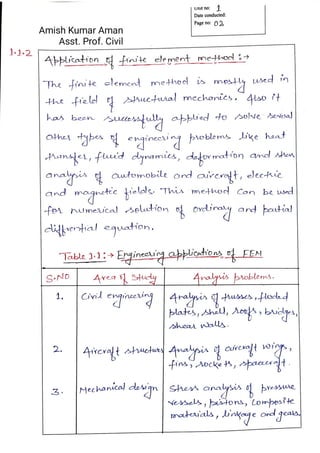 Unit no: 1
Date conducted:
Page no: 02
Amish Kumar Aman
Asst. Prof. Civil
1.1.2
Application of finite element method :→
The finite element method is mostly used in
the field of structural mechanics. Also it
has been successfully applied to solve several
other types of engineering problems like heat
transfer, fluid dynamics, deformation and stress
analysis of automobile and aircraft, electric
and magnetic fields. This method can be used
for numerical solution of ordinary and partial
differential equation.
Table 1.1 :→ Engineering applications of FEM
S.NO Area of Study Analysis problems.
1. Civil engineering Analysis of trusses, folded
plates, shell, roofs, bridges,
shear walls.
2. Aircraft structures Analysis of aircraft wings,
fins, rockets, spacecraft.
3. Mechanical design Stress analysis of pressure
vessels, pistons, composite
materials, linkage and gears.